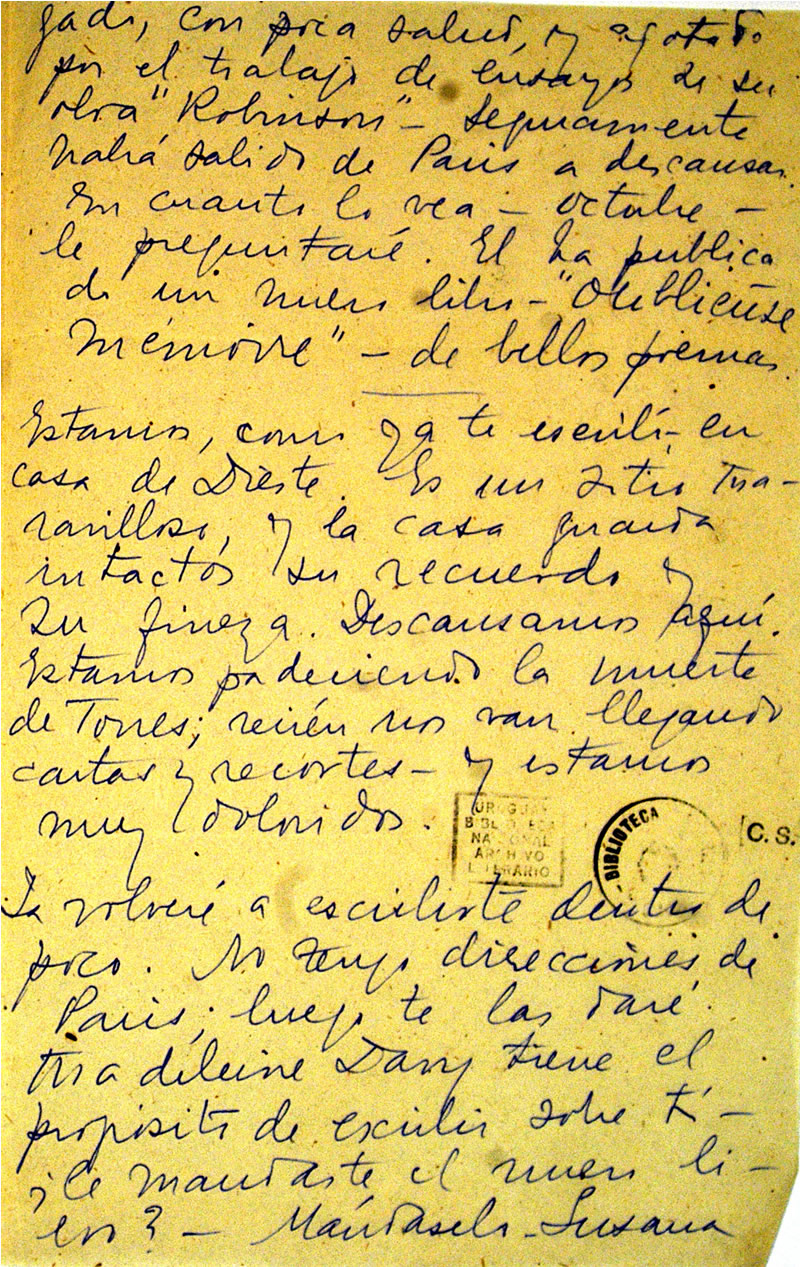 gado, con poca salud, y agotado
por el trabajo de ensayos de su
obra "Robinson" - Seguramente
habrá salido de Paris a descansar.
En cuanto lo vea - octubre -
le preguntaré. El ha publica
do un nuevo libro - "Oublieuse
Mémoire" - de bellos poemas.
Estamos, como ya te escribí, en
casa de Dieste. Es un sitio ma-
ravilloso, y la casa guarda
intactos su recuerdo y
su fineza. Descansamos aquí.
Estamos padeciendo la muerte
de Torres; recién nos van llegando
cartas y recortes - y estamos
muy doloridos.
URUGUAY
BIBLIOTECA
NACIONAL
ARCHIVO
LITERARIO
BIBLIOTECA
[C. S.
Ya volveré a escribirte dentro de
poco. No tengo direcciones de
Paris; luego te las daré.
Madeleine Davy tiene el
propósito de escribir sobre tí -
¿le mandaste el nuevo li-
bro? - Mándaselo - Susana